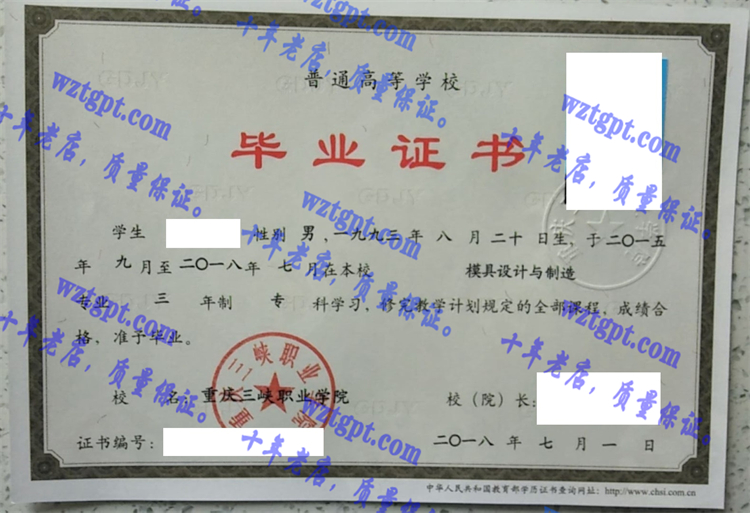 普通高等学校
毕业证书
学生 性别 男，一九九三年 八 月 二十 日生，于二〇一五
年 九 月至二〇一八年 七 月在本校 模具设计与制造
专业 三 年制 专 科学习，修完教学计划规定的全部课程，成绩合
格，准于毕业。
校 名：重庆三峡职业学院 校（院）长：
证书编号： 二〇一八 年 七 月 一 日
中华人民共和国教育部学历证书查询网址：http://www.chsi.com.cn
三峡职业
十年老店，质量保证。
wztgpt.com
十年老店，质量保证。
wztgpt.com
十年老店，质量保证。
wztgpt.com
十年老店，质量保证。
wztgpt.com
十年老店，质量保证。
wztgpt.com
十年老店，质量保证。
wztgpt.com
十年老店，质量保证。
wztgpt.com
十年老店，质量保证。
wztgpt.com
十年老店，质量保证。